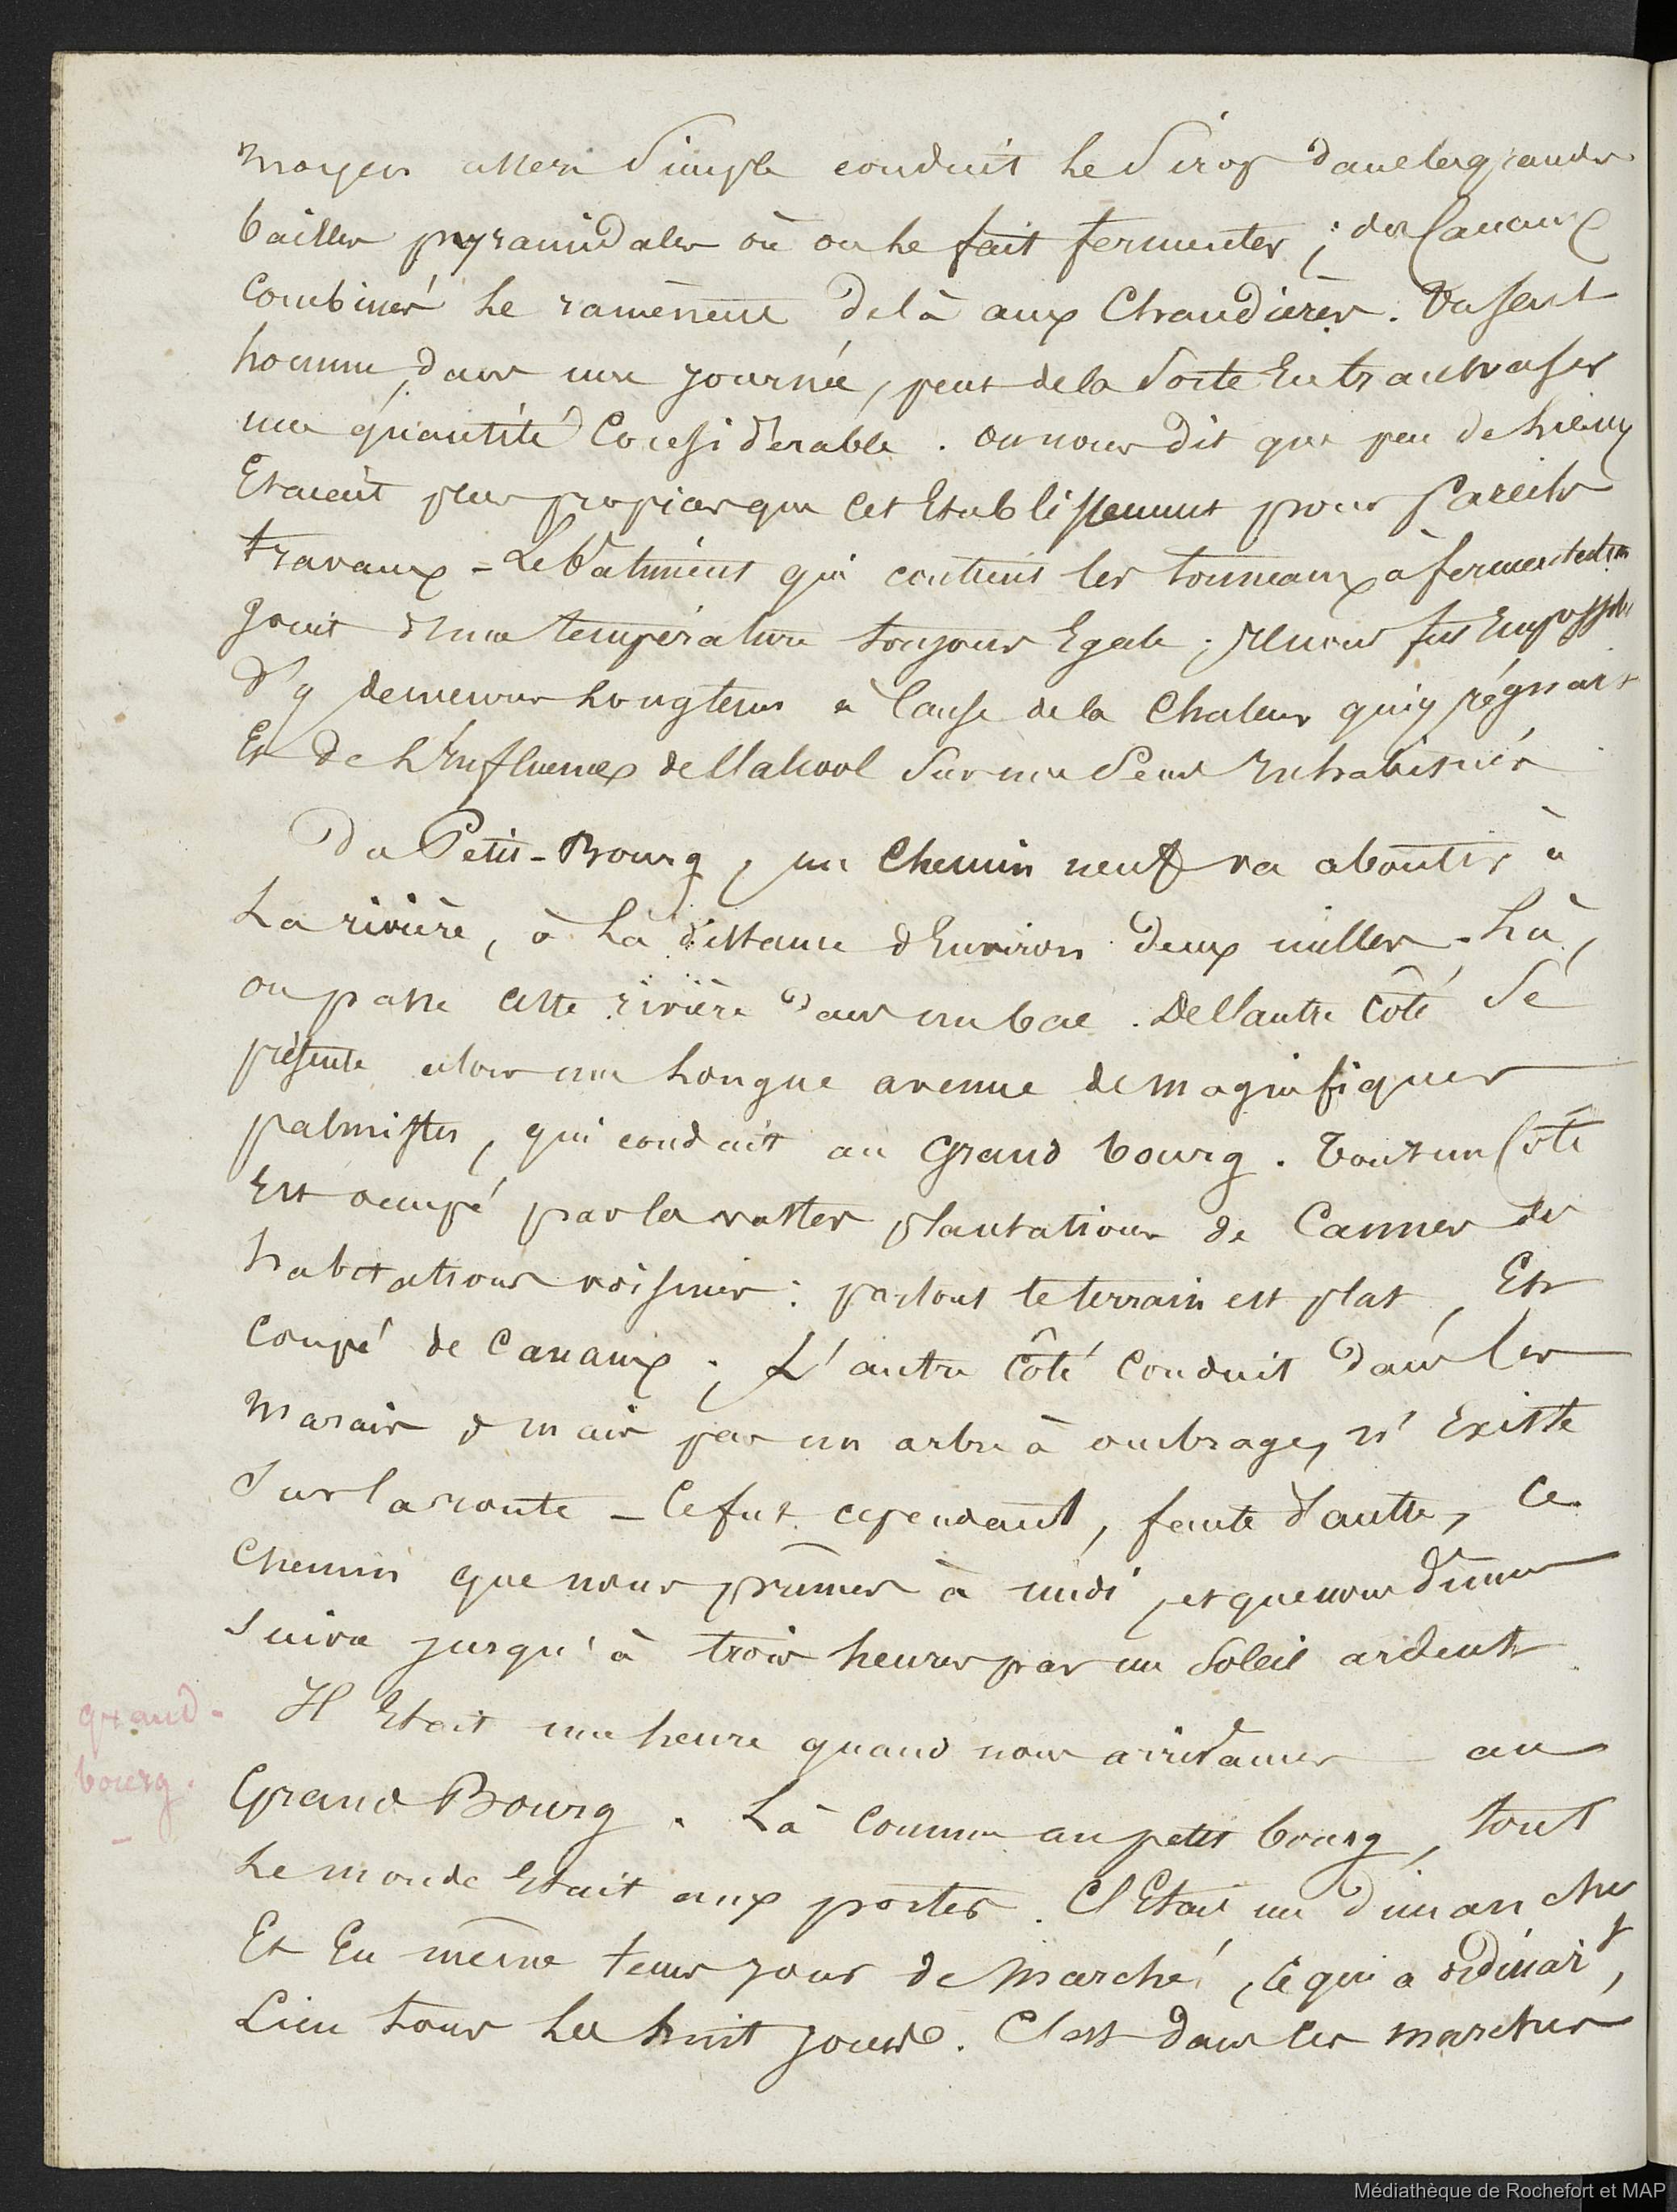 moyen assez Simple conduit le Sirop dans les grandes
bailles pyramidales où on le fait fermenter ; des Canaux
Combinés le ramènent delà aux Chaudières. Un seul
homme, dans une journée, peut de la Sorte En transvaser
une quantité Considérable. on nous dit que peu de lieux
Etaient plus propices que cet Etablissement pour Pareils
travaux - Le bâtiment qui contient les tonneaux à fermentation
Jouit d'une température toujours Egale ; Il nous fut Impossible
d'y demeurer Longtems à Cause de la Chaleur qui y régnait
Et de L'Influence de l'alcool Sur nos Sens Inhabitués
Du Petit-Bourg, un Chemin neuf va aboutir à
La rivière, à La distance d'Environ deux milles - Là,
on passe cette rivière dans un bac. De l'autre Côté Se
présente alors une Longue avenue de magnifiques
palmistes, qui conduit au Grand bourg. Tout un Côté
Est occupé par les vastes plantations de Cannes des
habitations voisines : partout le terrain est plat, Et
Coupé de Canaux ; L'autre Côté Conduit dans les
Marais & mais pas un arbre à ombrage, n'Existe
Sur la route - Ce fut cependant, faute d'autre, Ce
Chemin que nous prîmes à midi, et que nous dûmes
Suivre jusqu'à trois heures par un Soleil ardent.
Il Etait une heure quand nous arrivâmes au
grand-
bourg.
Grand Bourg. Là Comme au petit bourg, tout
Le monde Etait aux portes. C'Etait un dimanche
Et En même tems jour de Marché, ce qui a ordinairt,
Lieu tous Les huit jours. C'est dans les marchés
Médiathèque de Rochefort et MAP